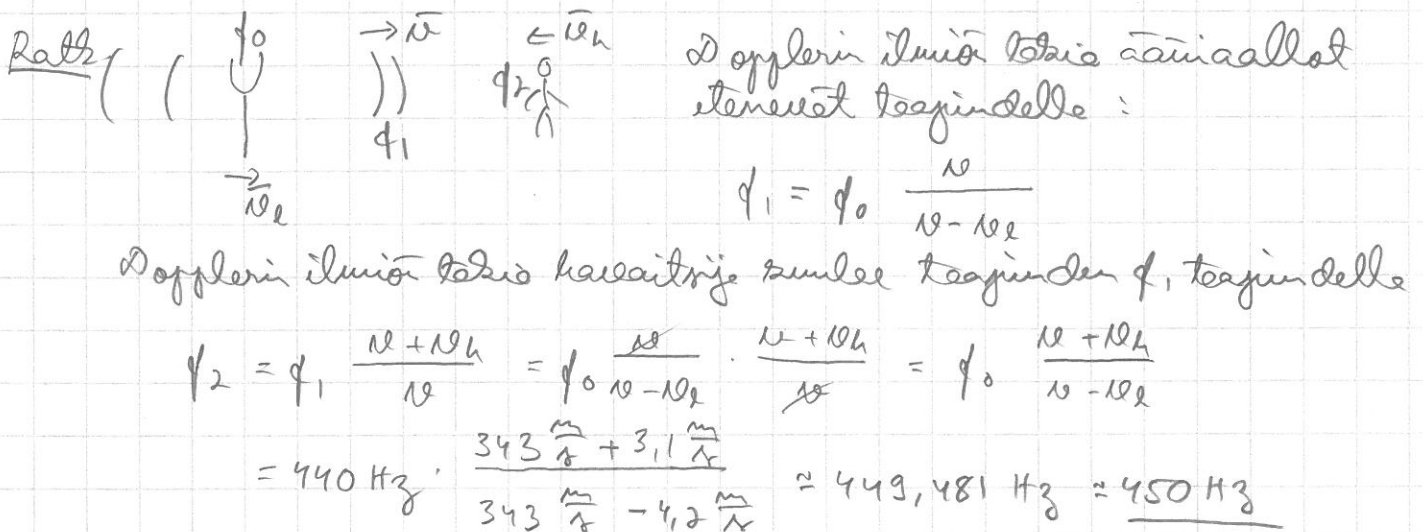 Ratk
f₀ → v̄ ← v̄ₕ
f₁ f₂
→ v̄ₗ
Dopplerin ilmiön takia ääniaallot
etenevät taajuudella :
f₁ = f₀ v / (v - vₗ)
Dopplerin ilmiön takia havaitsija kuulee taajuuden f₁ taajuudella
f₂ = f₁ (v + vₕ) / v = f₀ v / (v - vₗ) · (v + vₕ) / v = f₀ (v + vₕ) / (v - vₗ)
= 440 Hz · (343 m/s + 3,1 m/s) / (343 m/s - 4,2 m/s) ≈ 449,481 Hz ≈ 450 Hz